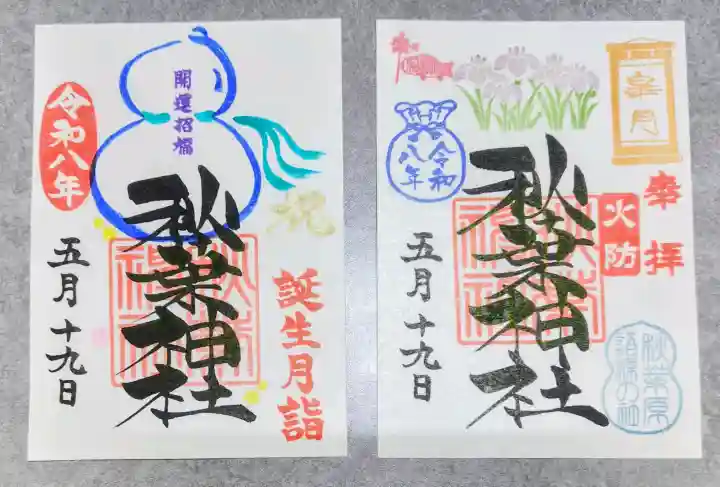 開運招福
令和八年
祝
秋葉神社
五月十九日
誕生月詣
皐月
令和八年
奉拝
火防
秋葉神社
五月十九日
秋葉原